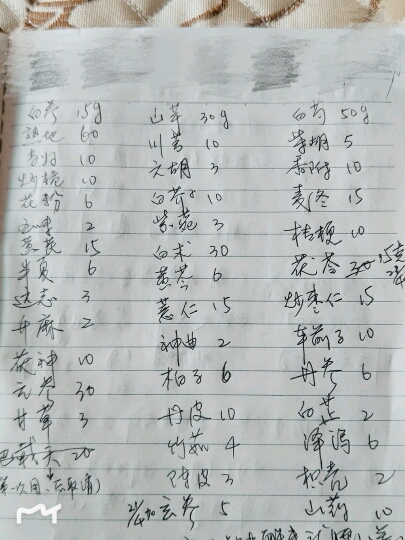 白参 15g 山芋 30g 白芍 50g
熟地 60 川芎 10 柴胡 5
当归 10 元胡 3 香附 10
炒栀 10 白芥子 10 麦冬 15
花粉 6 紫菀 3 桔梗 10
2 白术 30 茯苓 30 15克
黄芪 15 黄芩 6 炒枣仁 15
半夏 6 薏仁 15 车前子 10
远志 3 神曲 2 丹参 6
升麻 2 柏子 6 白芷 2
茯神 10 丹皮 10 泽泻 6
元参 30 竹茹 4 枳壳 2
甘草 3 陈皮 3 山药 10
巴戟天 20 加玄参 5
第一次用.后取消)